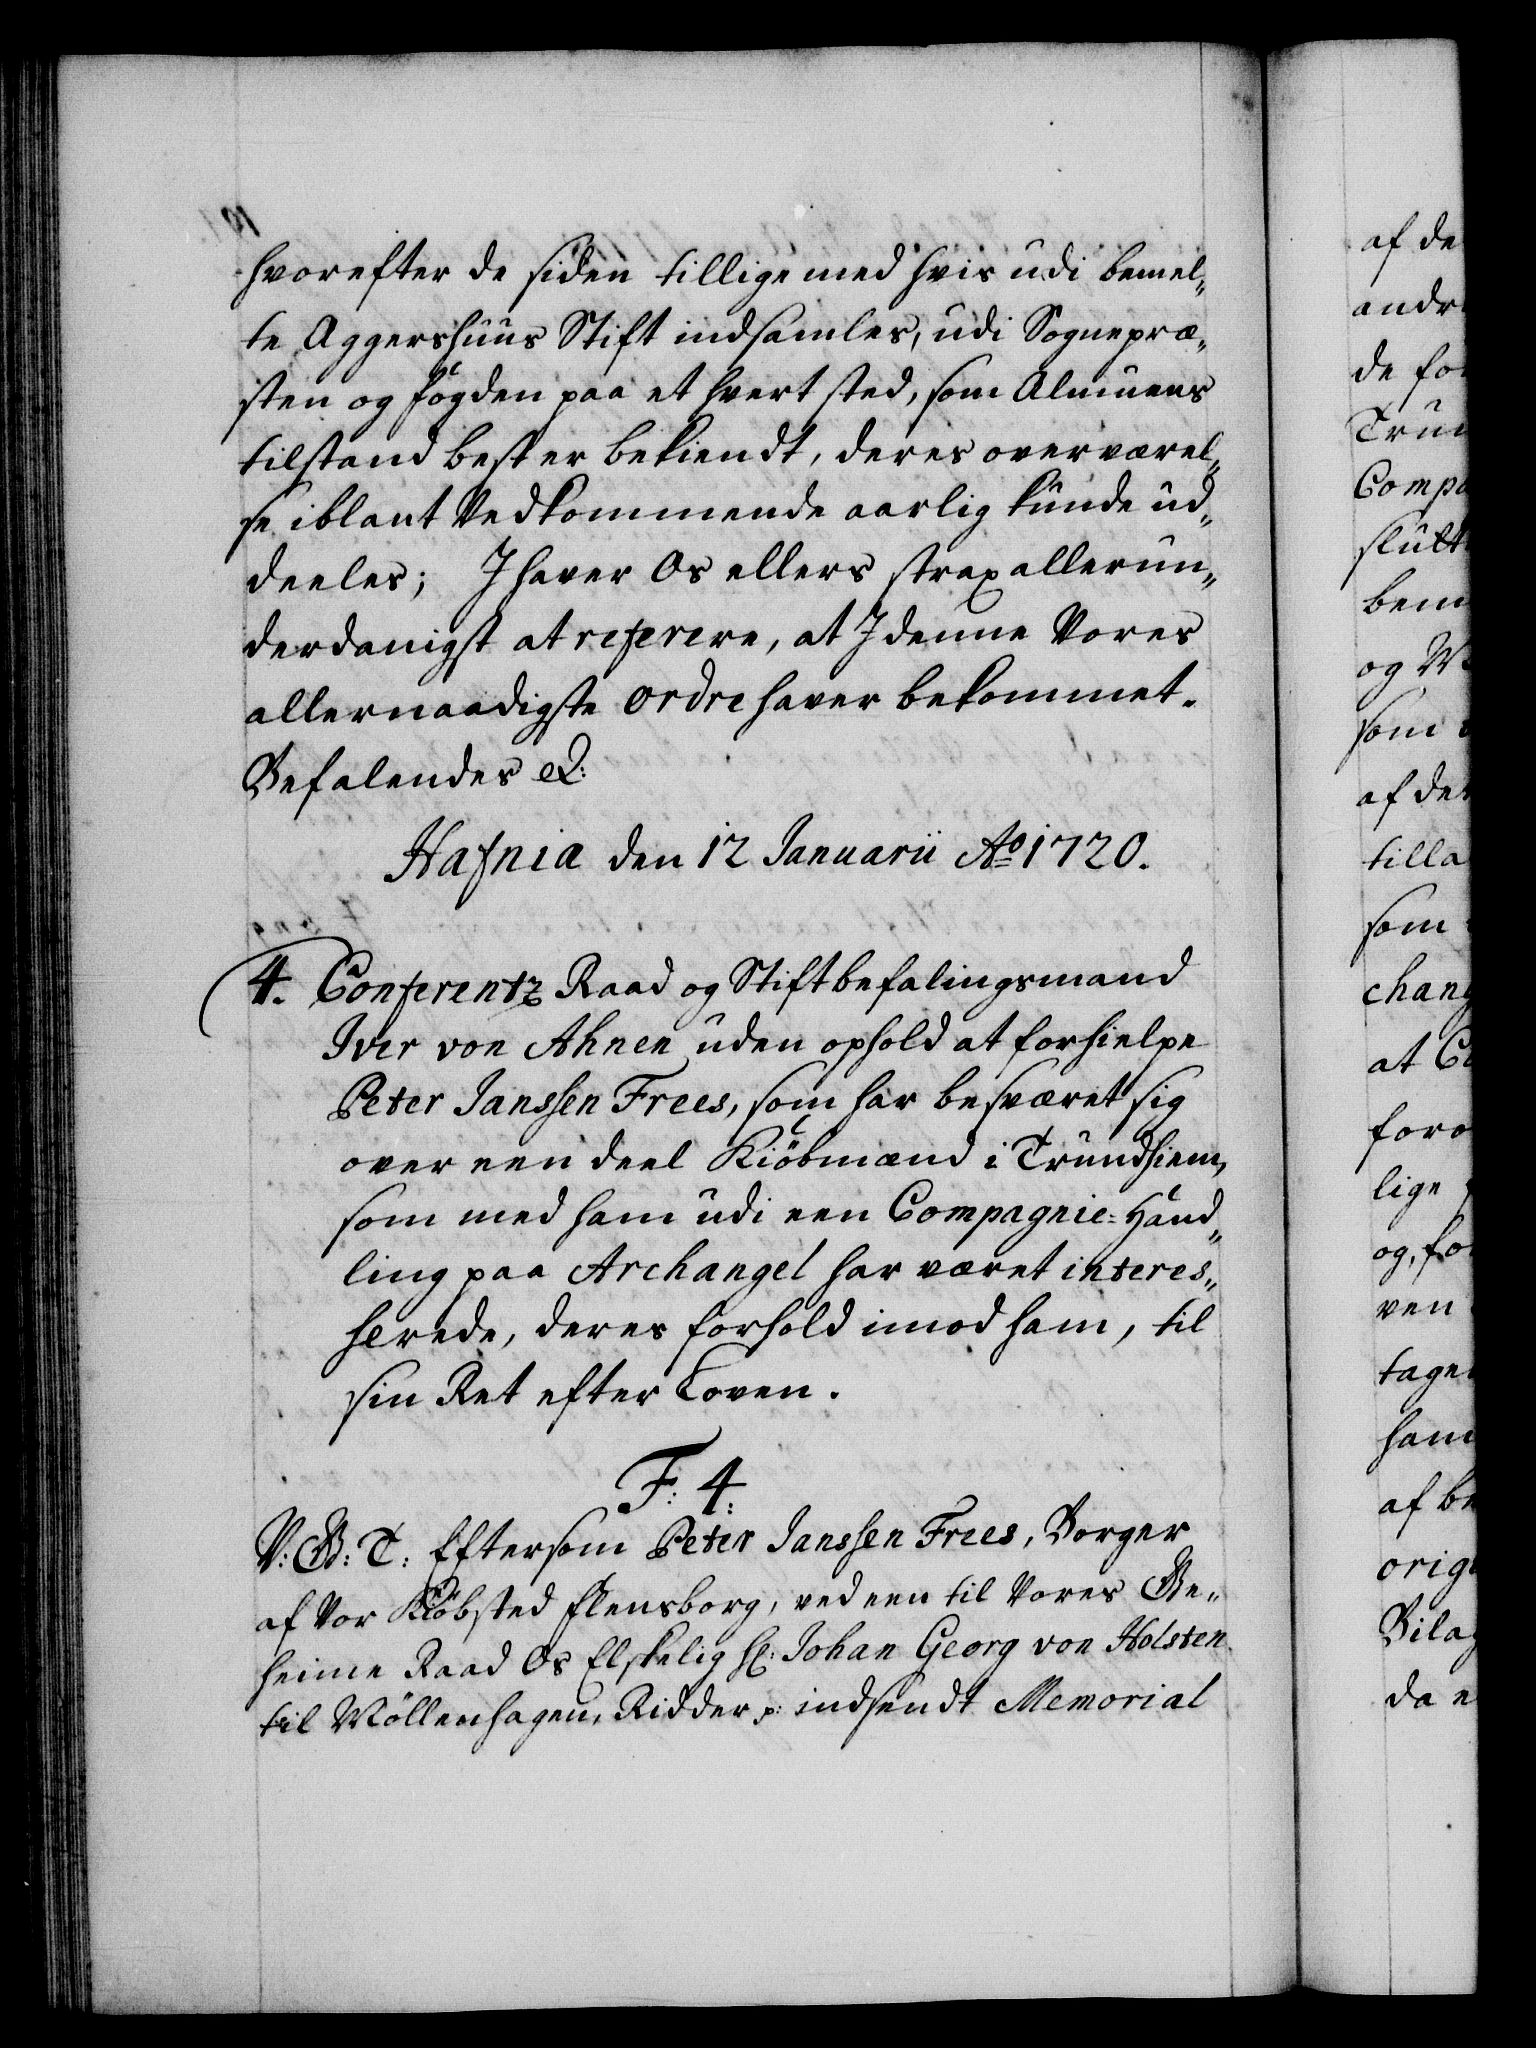 hvorefter de siden tillige med hvis udi bemel„
te Aggershuus Stift indsamles, udi Sognepræ„
sten og fogden paa et hvert sted, som Almuens
tilstand best er bekiendt, deres overværel„
se iblant Vedkommende aarlig kunde ud„
deeles; J haver Os ellers strax allerun„
derdanigst at referere, at J denne Vores
allernaadigste ordre haver bekommet.
Befalendes etc:
Hafnia den 12 Januarii Ao 1720.
4. Conferentz Raad og Stiftbefalingsmand
Iver von Ahnen uden ophold at forhielpe
Peter Janssen Frees, som har besværet sig
over een deel Kiöbmænd i Trundhiem,
som med ham udi een Compagnie-Hand„
ling paa Archangel har været interes„
serede, deres forhold imod ham, til
sin Ret efter Loven.
F: 4:
V: G: T: Eftersom Peter Janssen Frees, Borger
af Vor Kiöbsted Flensborg, ved een til Vores Ge„
heime Raad Os Elskelig Hr: Johan Georg von Holsten
til Möllenhagen, Ridder p: indsendt Memorial
af de
andr
de for
Trun
Compa
slutt
bem
og V
som
af de
tilla
som
chang
at C
foro
lige
og, for
ven
tage
ham
af be
orig
Bilag
da e